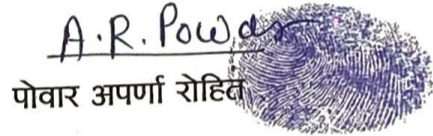 A.R. Powar
पोवार अपर्णा रोहित